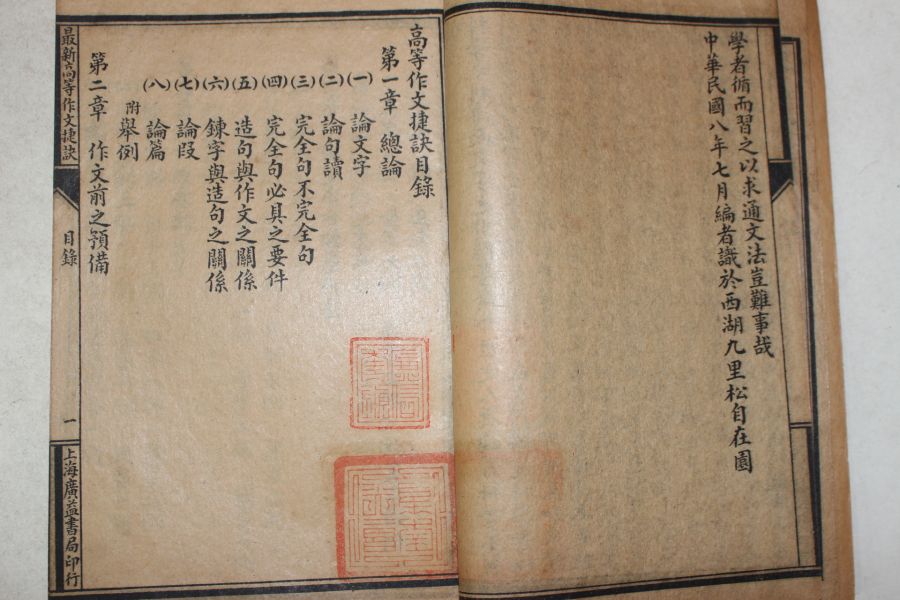 學者循而習之以求通文法豈難事哉
中華民國八年七月編者識於西湖九里松自在園
高等作文捷訣目錄
第一章 總論
(一) 論文字
(二) 論句讀
(三) 完全句不完全句
(四) 完全句必具之要件
(五) 造句與作文之關係
(六) 鍊字與造句之關係
(七) 論段
(八) 論篇
附舉例
第二章 作文前之預備
最新高等作文捷訣
目錄
一
上海廣益書局印行